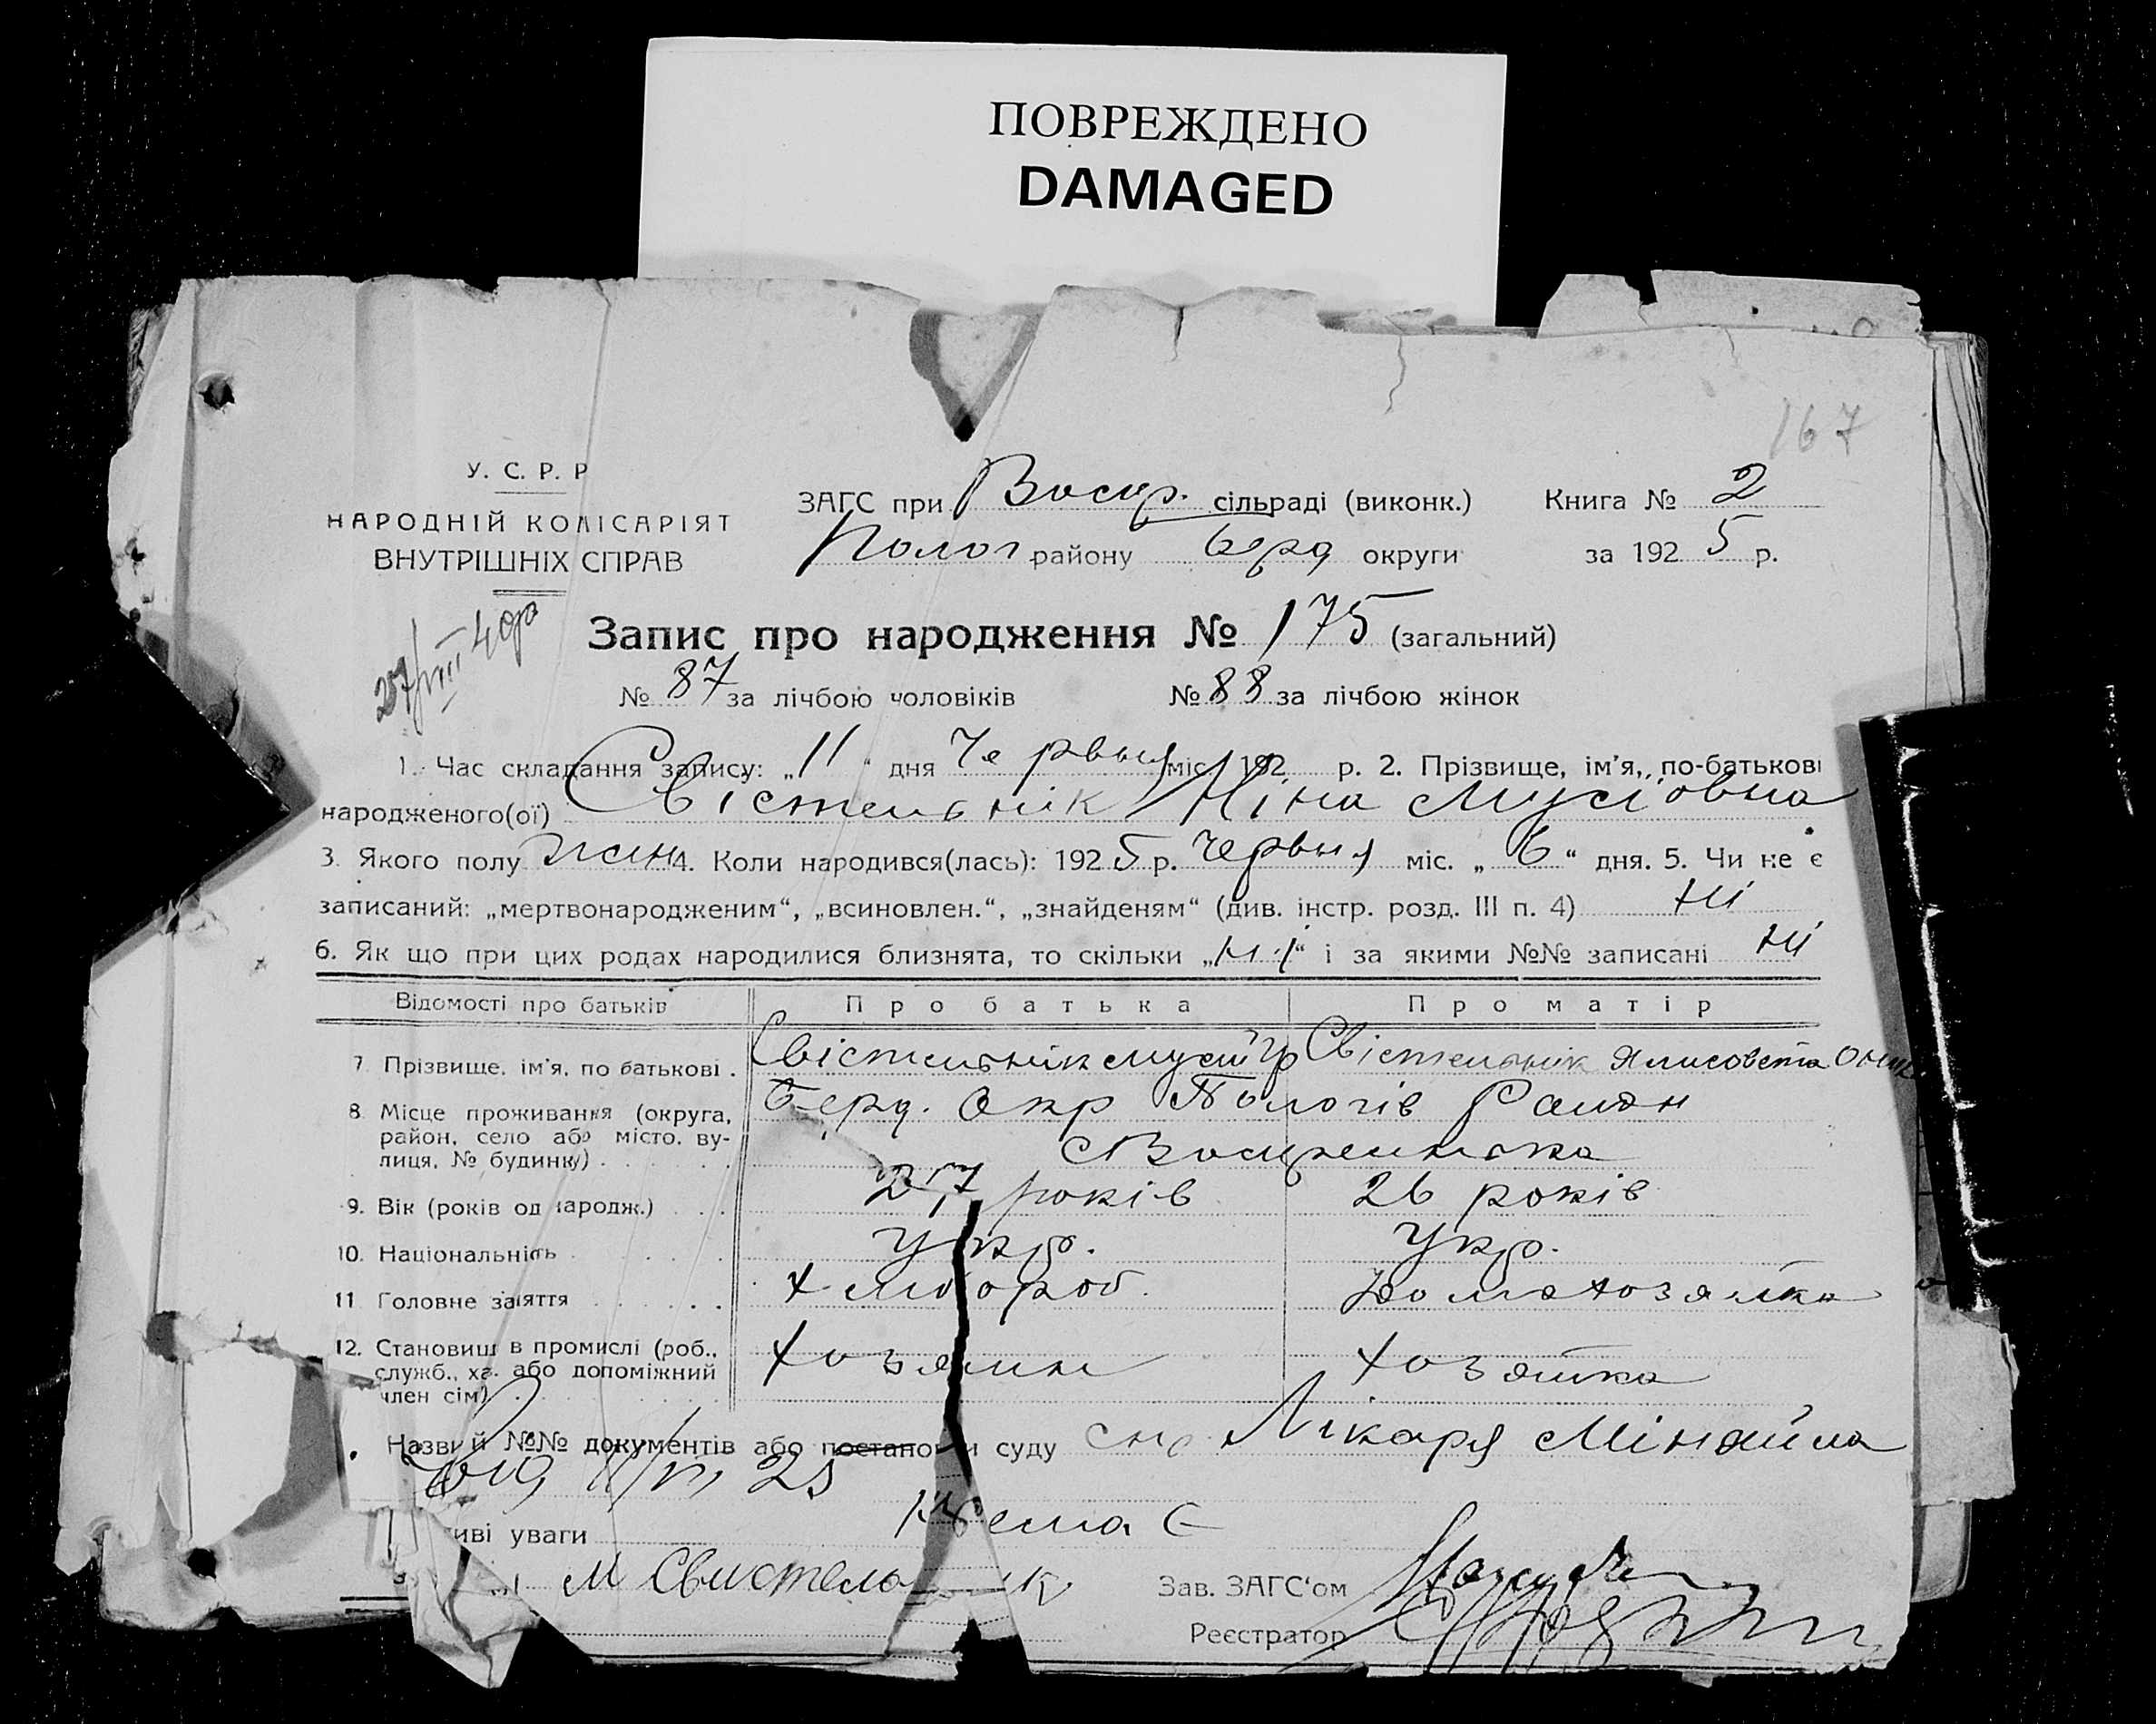 ПОВРЕЖДЕНО
DAMAGED
167
У. С. Р. Р
НАРОДНІЙ КОМІСАРІЯТ
ВНУТРІШНІХ СПРАВ
ЗАГС при Воскр. сільраді (виконк.) Книга № 2
Полог району Берд округи за 1925 р.
Запис про народження № 175 (загальний)
№ 87 за лічбою чоловіків № 88 за лічбою жінок
1. Час складання запису: „11“ дня Червня міс. 192 р. 2. Прізвище, ім'я, по-батькові
народженого(ої) Свістельнік Ніна Мусіовна
3. Якого полу жін 4. Коли народився(лась): 1925 р. Червня міс. „6“ дня. 5. Чи не є
записаний: „мертвонародженим“, „всиновлен.“, „знайденям“ (див. інстр. розд. III п. 4) Ні
6. Як що при цих родах народилися близнята, то скільки „ні“ і за якими №№ записані ні
Відомості про батьків Про батька Про матір
7. Прізвище, ім'я, по батькові . Свістельнік Мусій Гр Свістельнік Ялисовета
8. Місце проживання (округа, Берд. Окр Пологів Район
район, село або місто, ву-
лиця, № будинку) Воскресенька
9. Вік (років од народж.) 27 років 26 років
10. Національність Укр. Укр.
11 Головне заняття Хлібороб. Домохозяйка
12. Становищ в промислі (роб.,
служб., хаз. або допоміжний Хозяин Хозяйка
член сім)
Назви й №№ документів або постанови суду Лікаря Міняйла
від 11/VI 25
иві уваги
М Свистельник Зав. ЗАГС'ом
Реєстратор